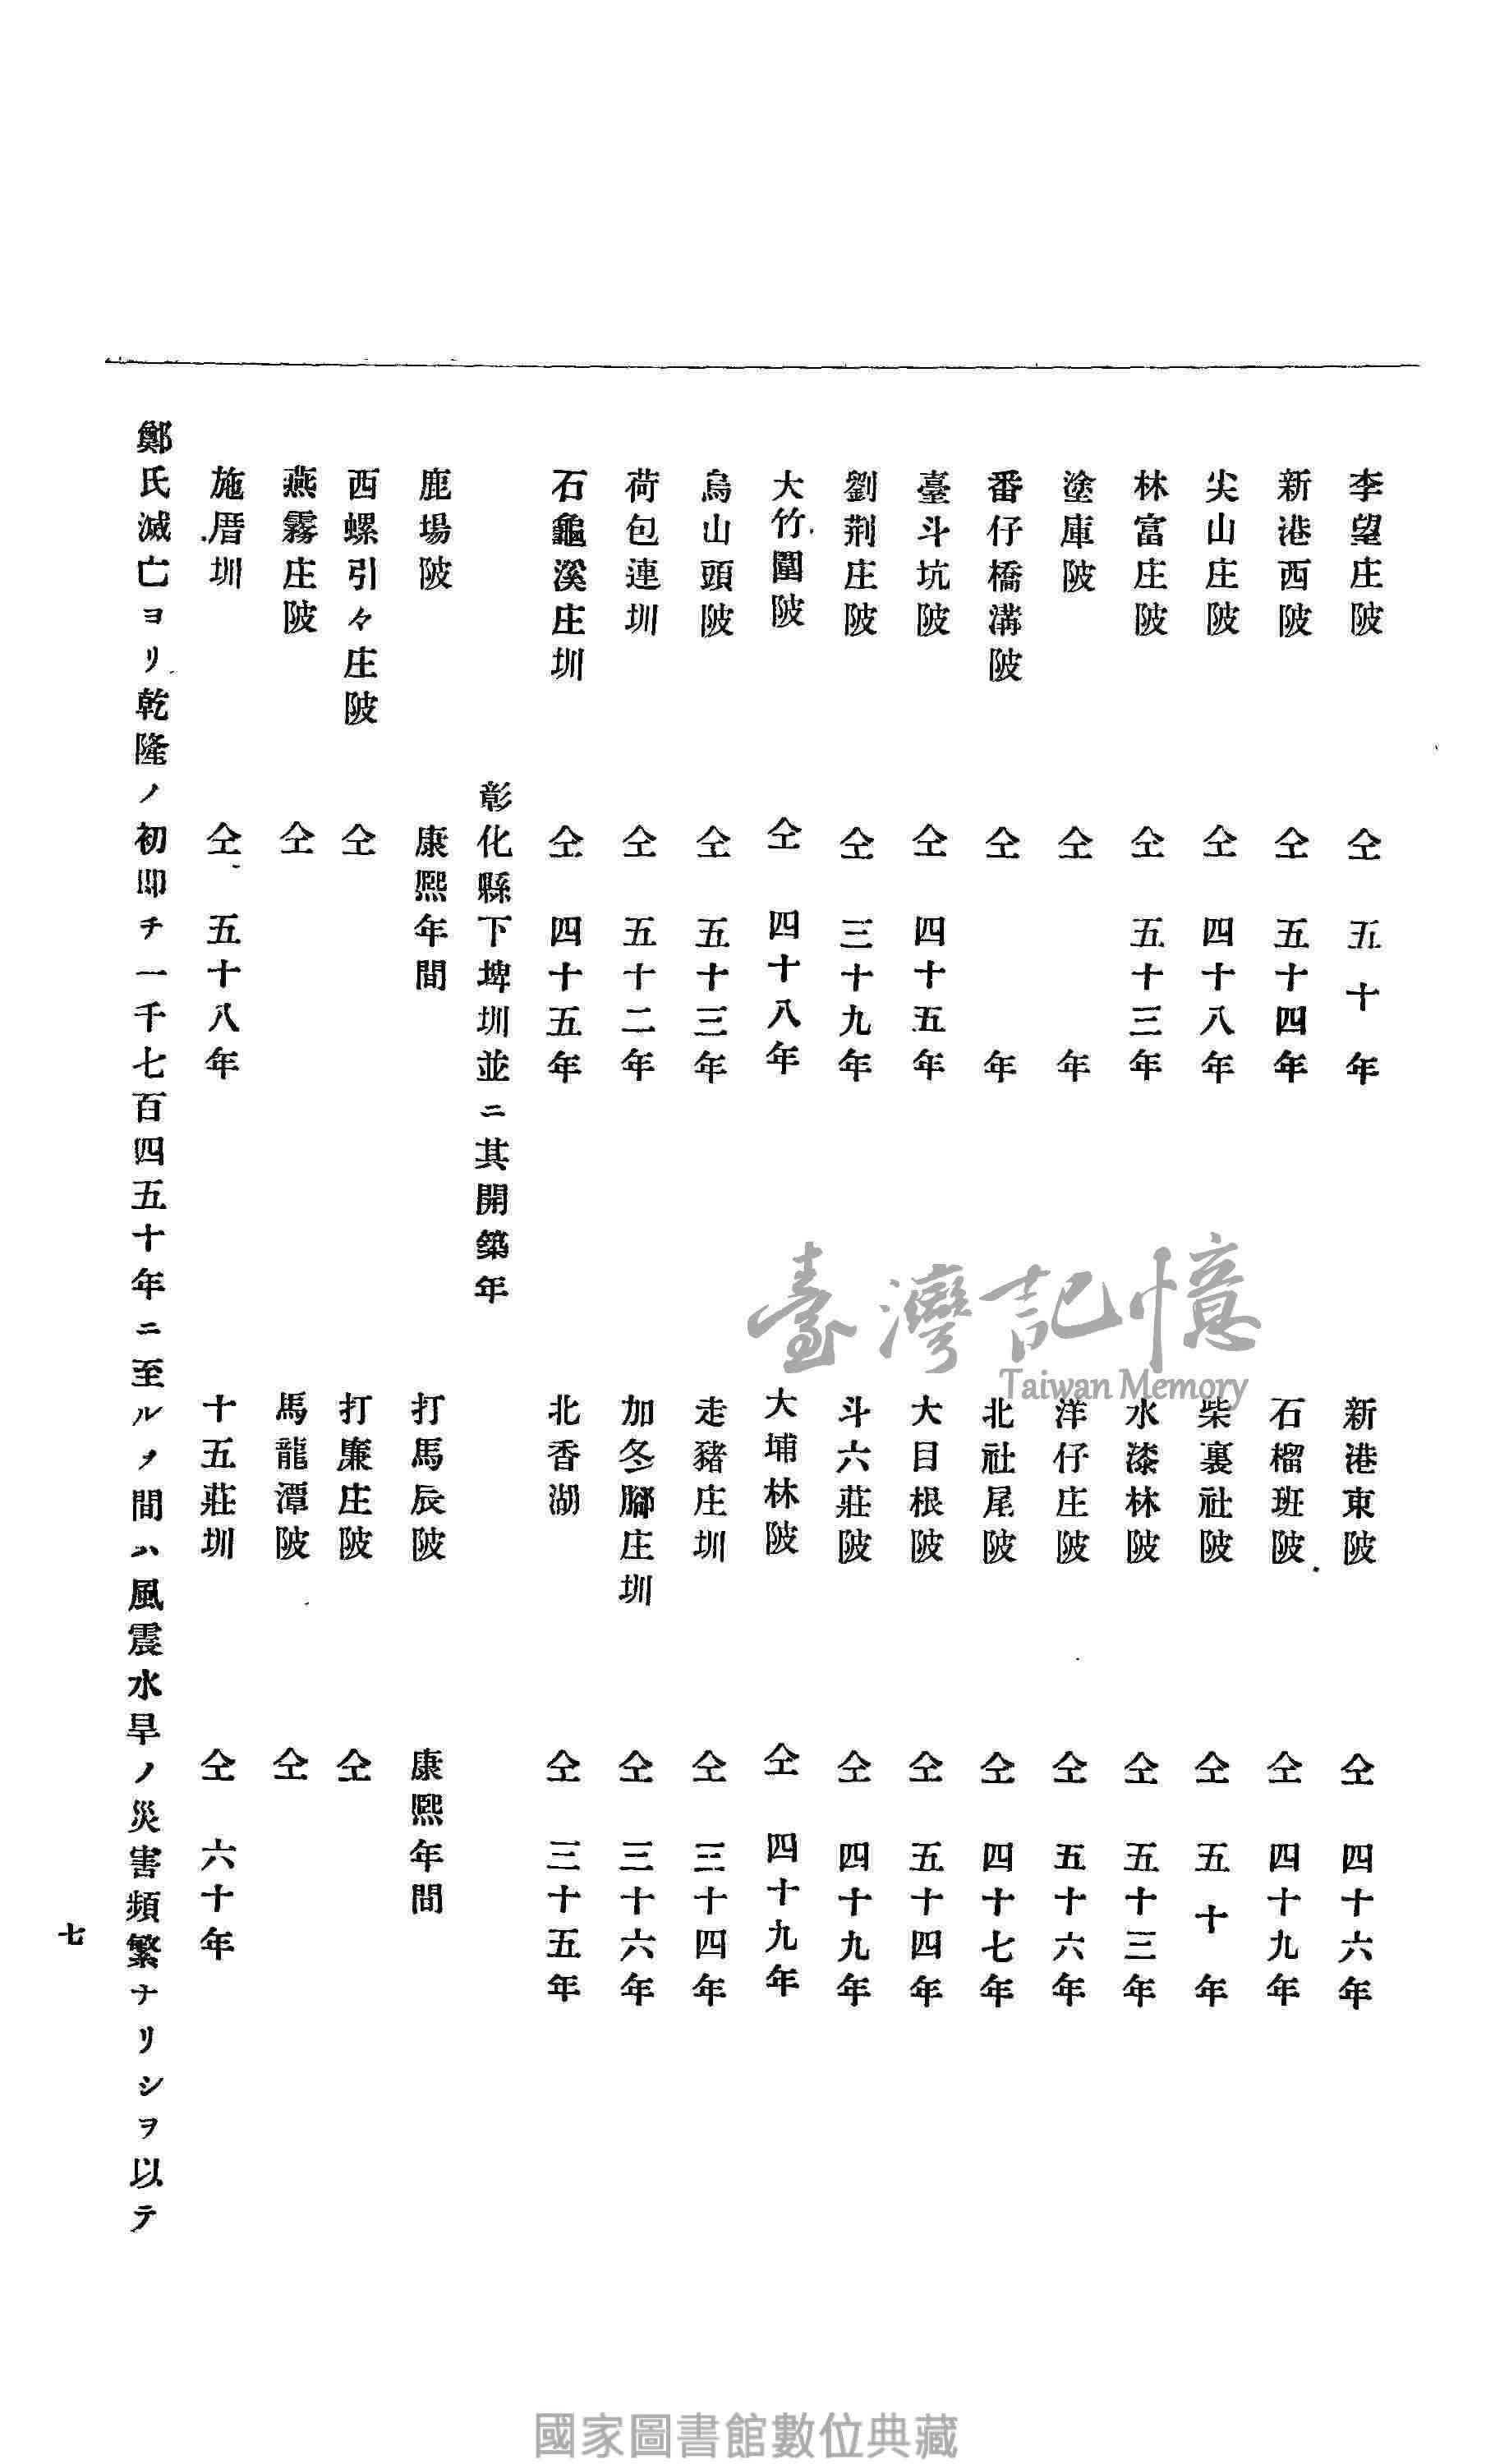 李望庄陂　仝　五十年　新港東陂　仝　四十六年
新港西陂　仝　五十四年　石榴班陂　仝　四十九年
尖山庄陂　仝　四十八年　柴裏社陂　仝　五十年
林富庄陂　仝　五十三年　水漆林陂　仝　五十三年
塗庫陂　仝　年　洋仔庄陂　仝　五十六年
番仔橋溝陂　仝　年　北社尾陂　仝　四十七年
臺斗坑陂　仝　四十五年　大目根陂　仝　五十四年
劉荊庄陂　仝　三十九年　斗六莊陂　仝　四十九年
大竹圍陂　仝　四十八年　大埔林陂　仝　四十九年
烏山頭陂　仝　五十三年　走豬庄圳　仝　三十四年
荷包連圳　仝　五十二年　加冬腳庄圳　仝　三十六年
石龜溪庄圳　仝　四十五年　北香湖　仝　三十五年
彰化縣下埤圳並ニ其開築年
鹿場陂　康熙年間　打馬辰陂　康熙年間
西螺引々庄陂　仝　打廉庄陂　仝
燕霧庄陂　仝　馬龍潭陂　仝
施厝圳　仝　五十八年　十五莊圳　仝　六十年
鄭氏滅亡ヨリ乾隆ノ初即チ一千七百四五十年ニ至ルノ間ハ風震水旱ノ災害頻繁ナリシヲ以テ
七
臺灣記憶
Taiwan Memory
國家圖書館數位典藏